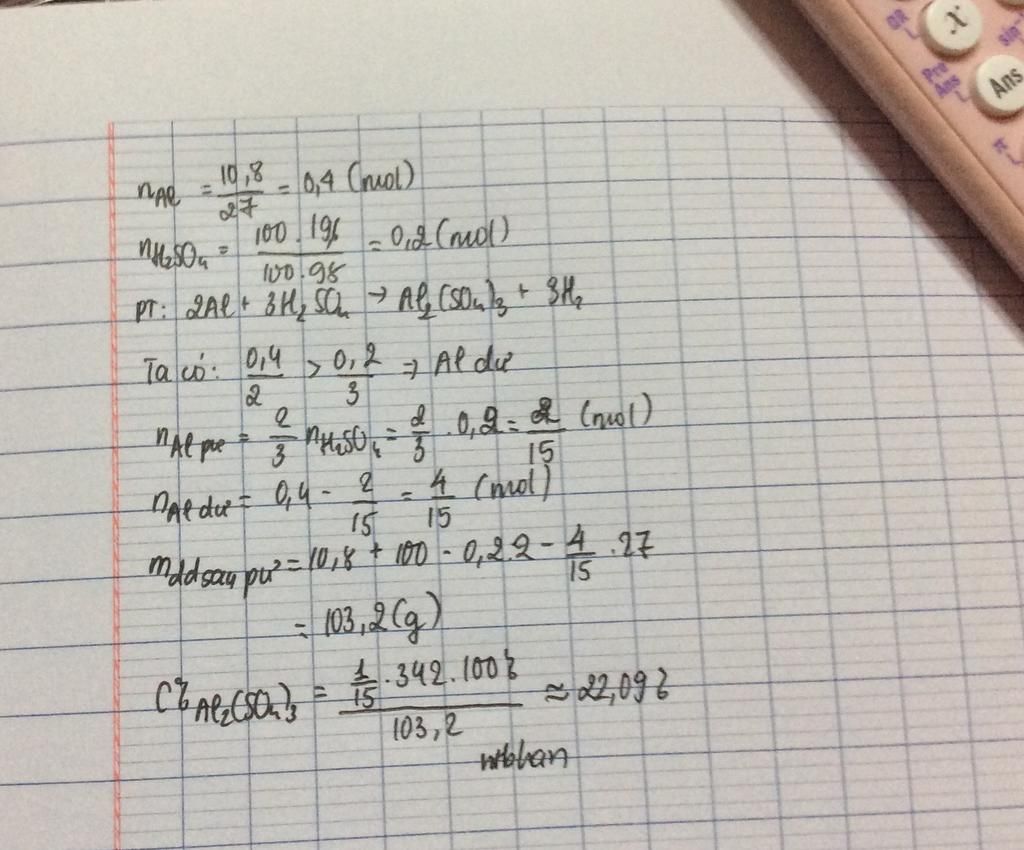 x
QR
sin⁻¹
Pre Ans
Ans
π
nAl = 10,8/27 = 0,4 (mol)
nH₂SO₄ = 100.19,6/100.98 = 0,2 (mol)
PT: 2Al + 3H₂SO₄ → Al₂(SO₄)₃ + 3H₂
Ta có: 0,4/2 > 0,2/3 ⇒ Al dư
nAl pư = 2/3 nH₂SO₄ = 2/3 . 0,2 = 2/15 (mol)
nAl dư = 0,4 - 2/15 = 4/15 (mol)
mdd sau pư = 10,8 + 100 - 0,2.2 - 4/15 .27
= 103,2 (g)
C% Al₂(SO₄)₃ = 1/15 .342.100% / 103,2 ≈ 22,09%